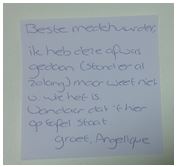 Beste medehuurder,
ik heb deze afwas
gedaan (stond er al
zolang) maar weet niet
v. wie het is.
Vandaar dat 't hier
op tafel staat
groet, Angelique